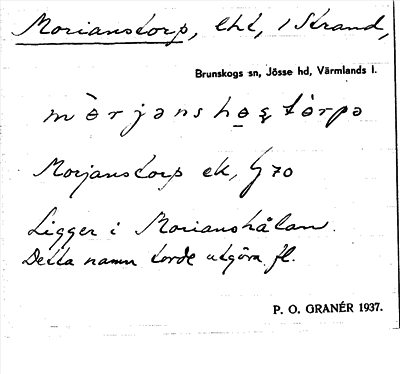 Morianstorp, lht, i Strand,
Brunskogs sn, Jösse hd, Värmlands l.
Morjanstorp ek, G 70
Ligger i Morianshålan.
Detta namn torde utgöra fl.
P. O. GRANÉR 1937.